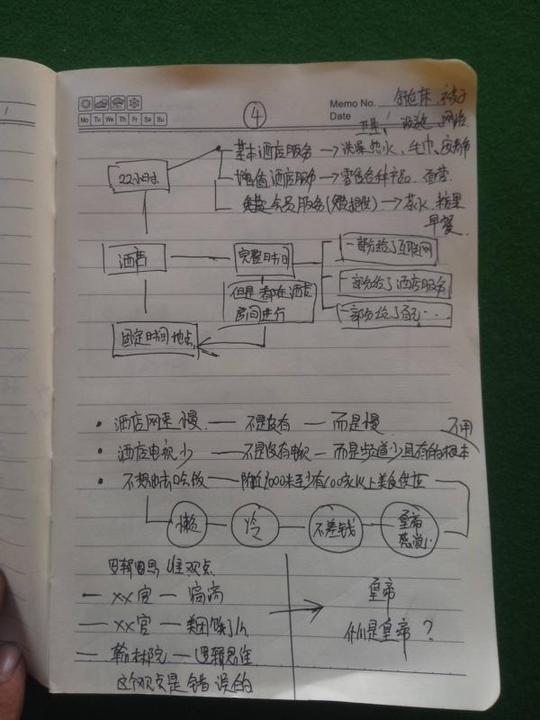 ④
Memo No.
Date
Mo Tu We Th Fr Sa Su
22小时
基本酒店服务 → 洗澡热水、毛巾、
增值酒店服务 → 零售各种产品
会员服务 → 茶水、糖果
早餐
酒店
完整时间
一部分给了互联网
但是都在酒店
房间进行
一部分给了酒店服务
一部分给了
固定时间地点
• 酒店网速慢 — 不是没有 — 而是慢
不用
• 酒店电视少 — 不是没有电视 — 而是频道少且有的根本
• 不想出去吃饭 — 附近1000米至少有100家以上美食店在
懒
冷
不差钱
皇帝
感觉
观点
— XX宫 —
— XX宫 —
皇帝
— 翰林院 — 逻辑思维
他们是皇帝？
这个观点是错误的